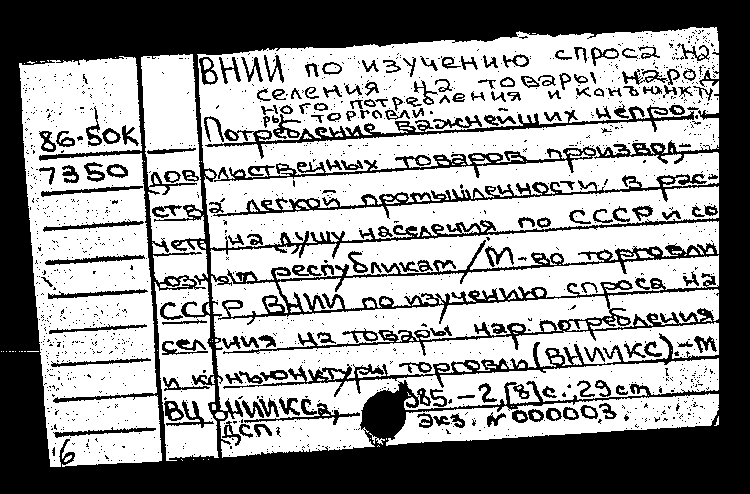 ВНИИ по изучению спроса на-
селения на товары народ-
ного потребления и конъюнкту-
ры торговли.
86-50К Потребление важнейших непро-
7350 довольственных товаров производ-
ства легкой промышленности в рас-
чете на душу населения по СССР и со
юзным республикам / М-во торговли
СССР, ВНИИ по изучению спроса на
селения на товары нар. потребления
и конъюнктуры торговли (ВНИИКС).-М
ВЦ ВНИИКСа, 985.-2,[8]с.; 29см.
ДСП. экз. № 000003.
6